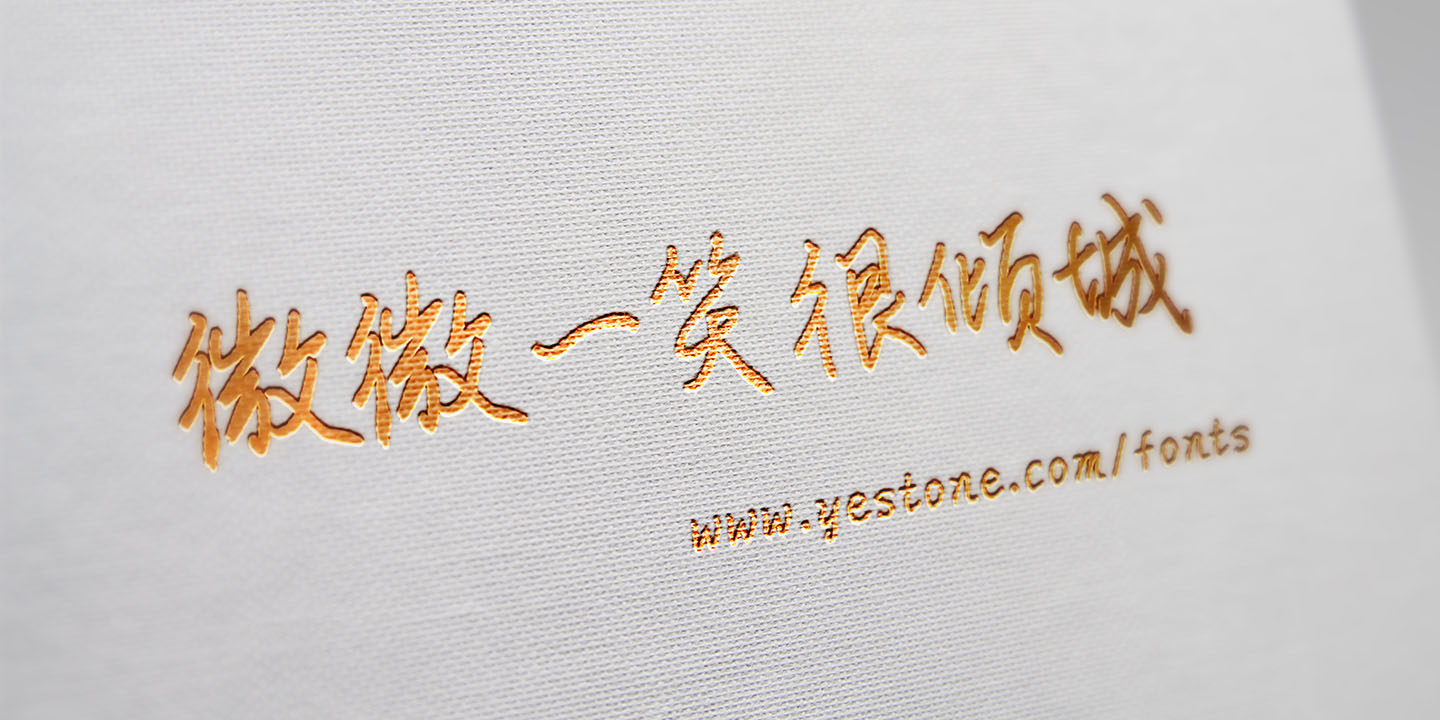 微微一笑很倾城
www.yestone.com/fonts